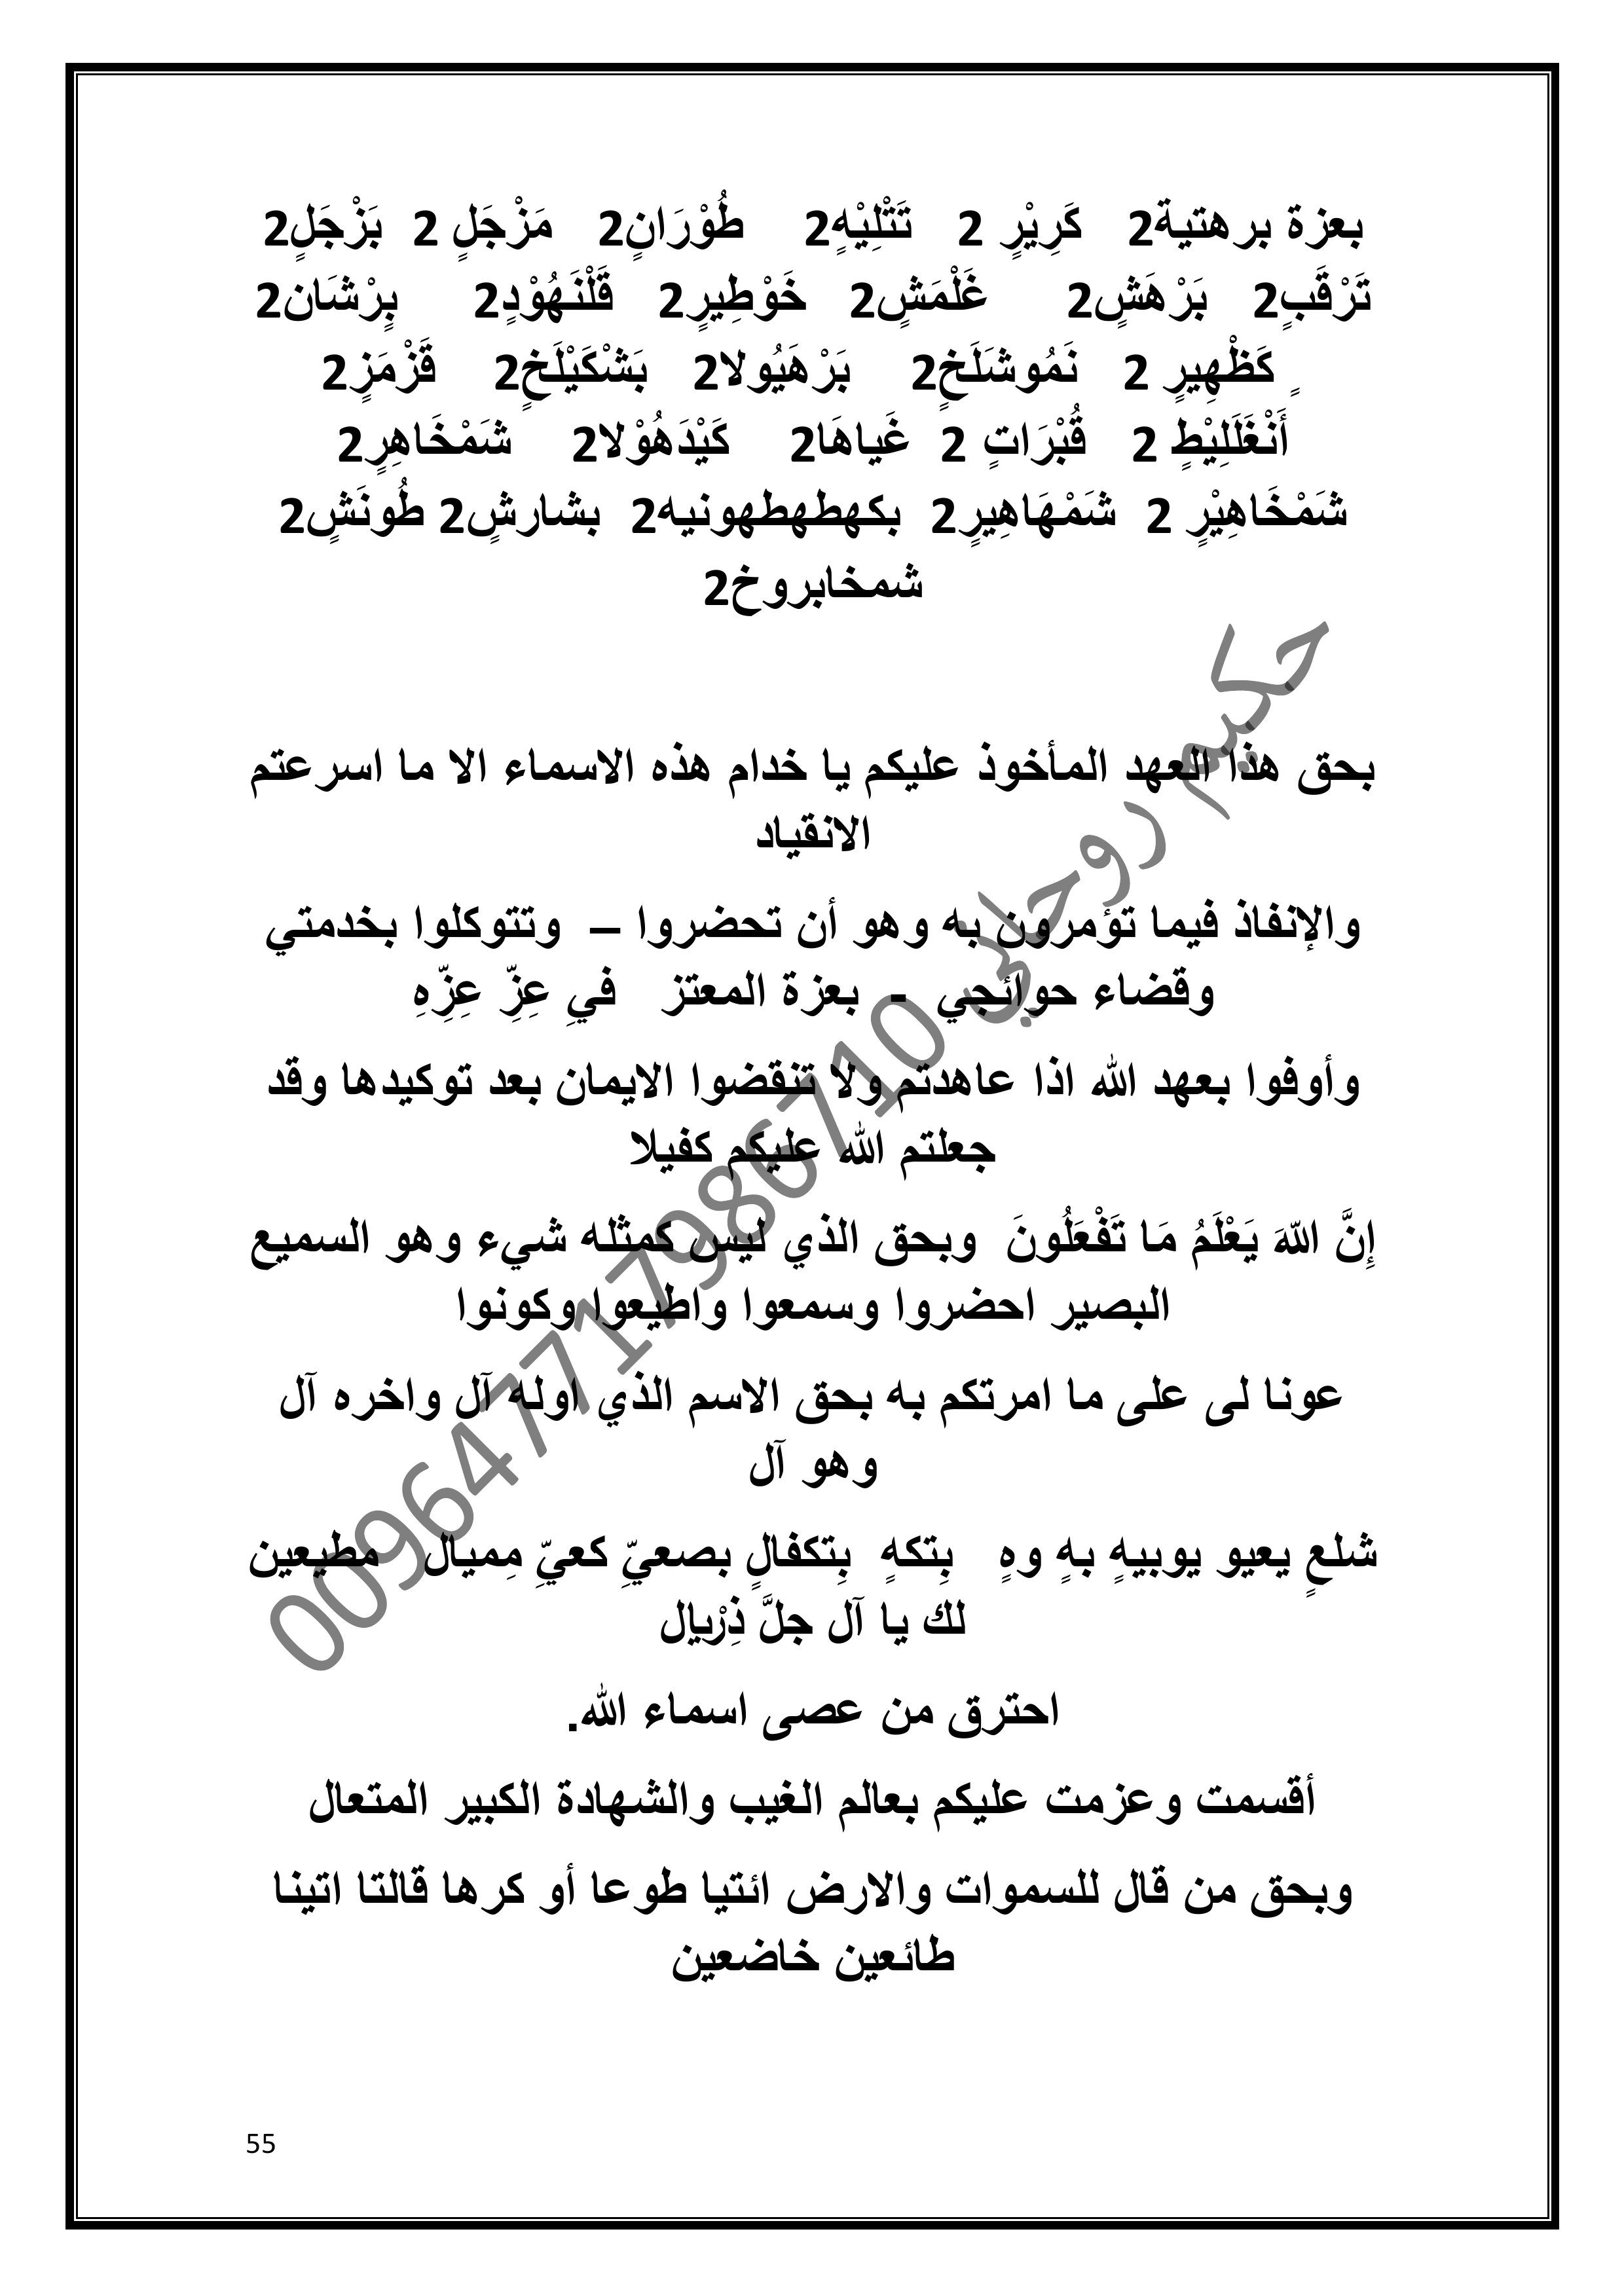 بعزة برهتية2 كَرِيْرٍ 2 تَتْلِيْهٍ2 طُوْرَانٍ2 مَزْجَلٍ 2 بَزْجَلٍ2
تَرْقَبٍ2 بَرْهَشٍ2 غَلْمَشٍ2 خَوْطِيرٍ2 قَلْنَهُوْدٍ2 بٍرْشَان2
ٍ كَظْهِيرٍ 2 نَمُوشَلَخٍ2 بَرْهَيُولا2 بَشْكَيْلَخٍ2 قَزْمَزٍ2
أَنْغَلَلِيْطٍ 2 قُبْرَاتٍ 2 غَياهَا2 كَيْدَهُوْلا2 شَمْخَاهِرٍ2
شَمْخَاهِيْرٍ 2 شَمْهَاهِيرٍ2 بكهطهطهونيه2 بشارشٍ2 طُونَشٍ2
شمخابروخ2
بحق هذا العهد المأخوذ عليكم يا خدام هذه الاسماء الا ما اسرعتم
الانقياد
والإنفاذ فيما تؤمرون به وهو أن تحضروا – وتتوكلوا بخدمتي
وقضاء حوائجي - بعزة المعتز فيِ عِزِّ عِزِّهِ
وأوفوا بعهد الله اذا عاهدتم ولا تنقضوا الايمان بعد توكيدها وقد
جعلتم الله عليكم كفيلا
إِنَّ اللّهَ يَعْلَمُ مَا تَفْعَلُونَ وبحق الذي ليس كمثله شيء وهو السميع
البصير احضروا وسمعوا واطيعوا وكونوا
عونا لى على ما امرتكم به بحق الاسم الذي اوله آل واخره آل
وهو آل
شلعٍ يعيو يوبيهٍ بهٍ وهٍ بِتكهٍ بِتكفالٍ بصعيِّ كعيِّ مِميال مطيعين
لك يا آل جلَّ ذِرْيإل
احترق من عصى اسماء الله.
أقسمت وعزمت عليكم بعالم الغيب والشهادة الكبير المتعال
وبحق من قال للسموات والارض ائتيا طوعا أو كرها قالتا اتينا
طائعين خاضعين
حكيم روحاني 009647717986710
55